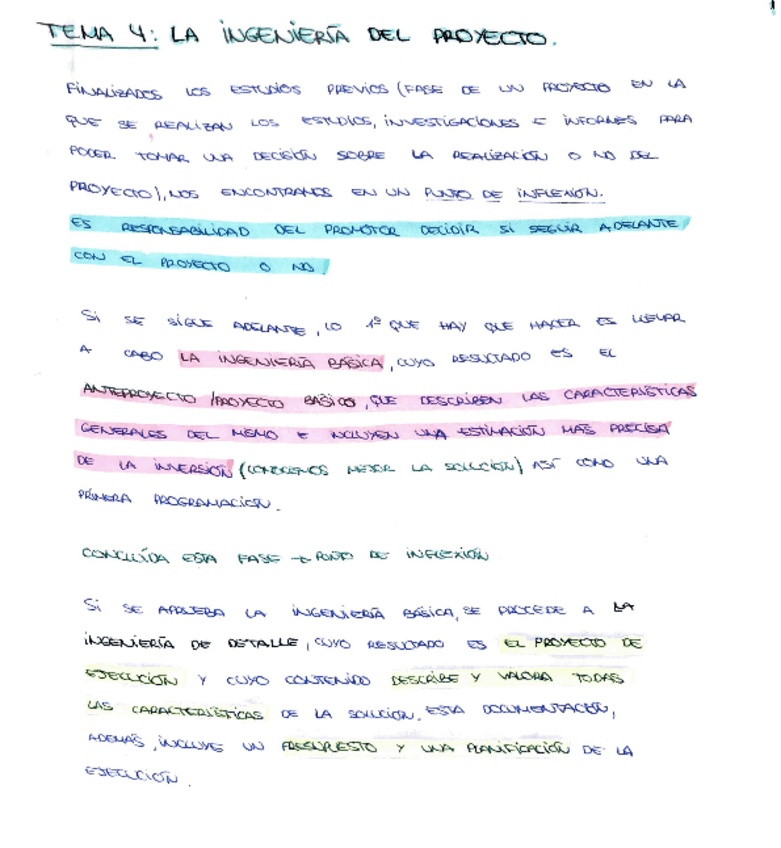 TEMA 4: LA INGENIERÍA DEL PROYECTO.
FINALIZADOS LOS ESTUDIOS PREVIOS (FASE DE UN PROYECTO EN LA
QUE SE REALIZAN LOS ESTUDIOS, INVESTIGACIONES E INFORMES PARA
PODER TOMAR UNA DECISIÓN SOBRE LA REALIZACIÓN O NO DEL
PROYECTO), NOS ENCONTRAMOS EN UN PUNTO DE INFLEXIÓN.
ES RESPONSABILIDAD DEL PROMOTOR DECIDIR SI SEGUIR ADELANTE
CON EL PROYECTO O NO.
SI SE SIGUE ADELANTE, LO 1º QUE HAY QUE HACER ES LLEVAR
A CABO LA INGENIERÍA BÁSICA, CUYO RESULTADO ES EL
ANTEPROYECTO / PROYECTO BÁSICO, QUE DESCRIBEN LAS CARACTERÍSTICAS
GENERALES DEL MISMO E INCLUYEN UNA ESTIMACIÓN MÁS PRECISA
DE LA INVERSIÓN (CONOCEMOS MEJOR LA SOLUCIÓN) ASÍ COMO UNA
PRIMERA PROGRAMACIÓN.
CONCLUÍDA ESTA FASE → PUNTO DE INFLEXIÓN
SI SE APRUEBA LA INGENIERÍA BÁSICA, SE PROCEDE A LA
INGENIERÍA DE DETALLE, CUYO RESULTADO ES EL PROYECTO DE
EJECUCIÓN Y CUYO CONTENIDO DESCRIBE Y VALORA TODAS
LAS CARACTERÍSTICAS DE LA SOLUCIÓN. ESTA DOCUMENTACIÓN,
ADEMÁS, INCLUYE UN PRESUPUESTO Y UNA PLANIFICACIÓN DE LA
EJECUCIÓN.